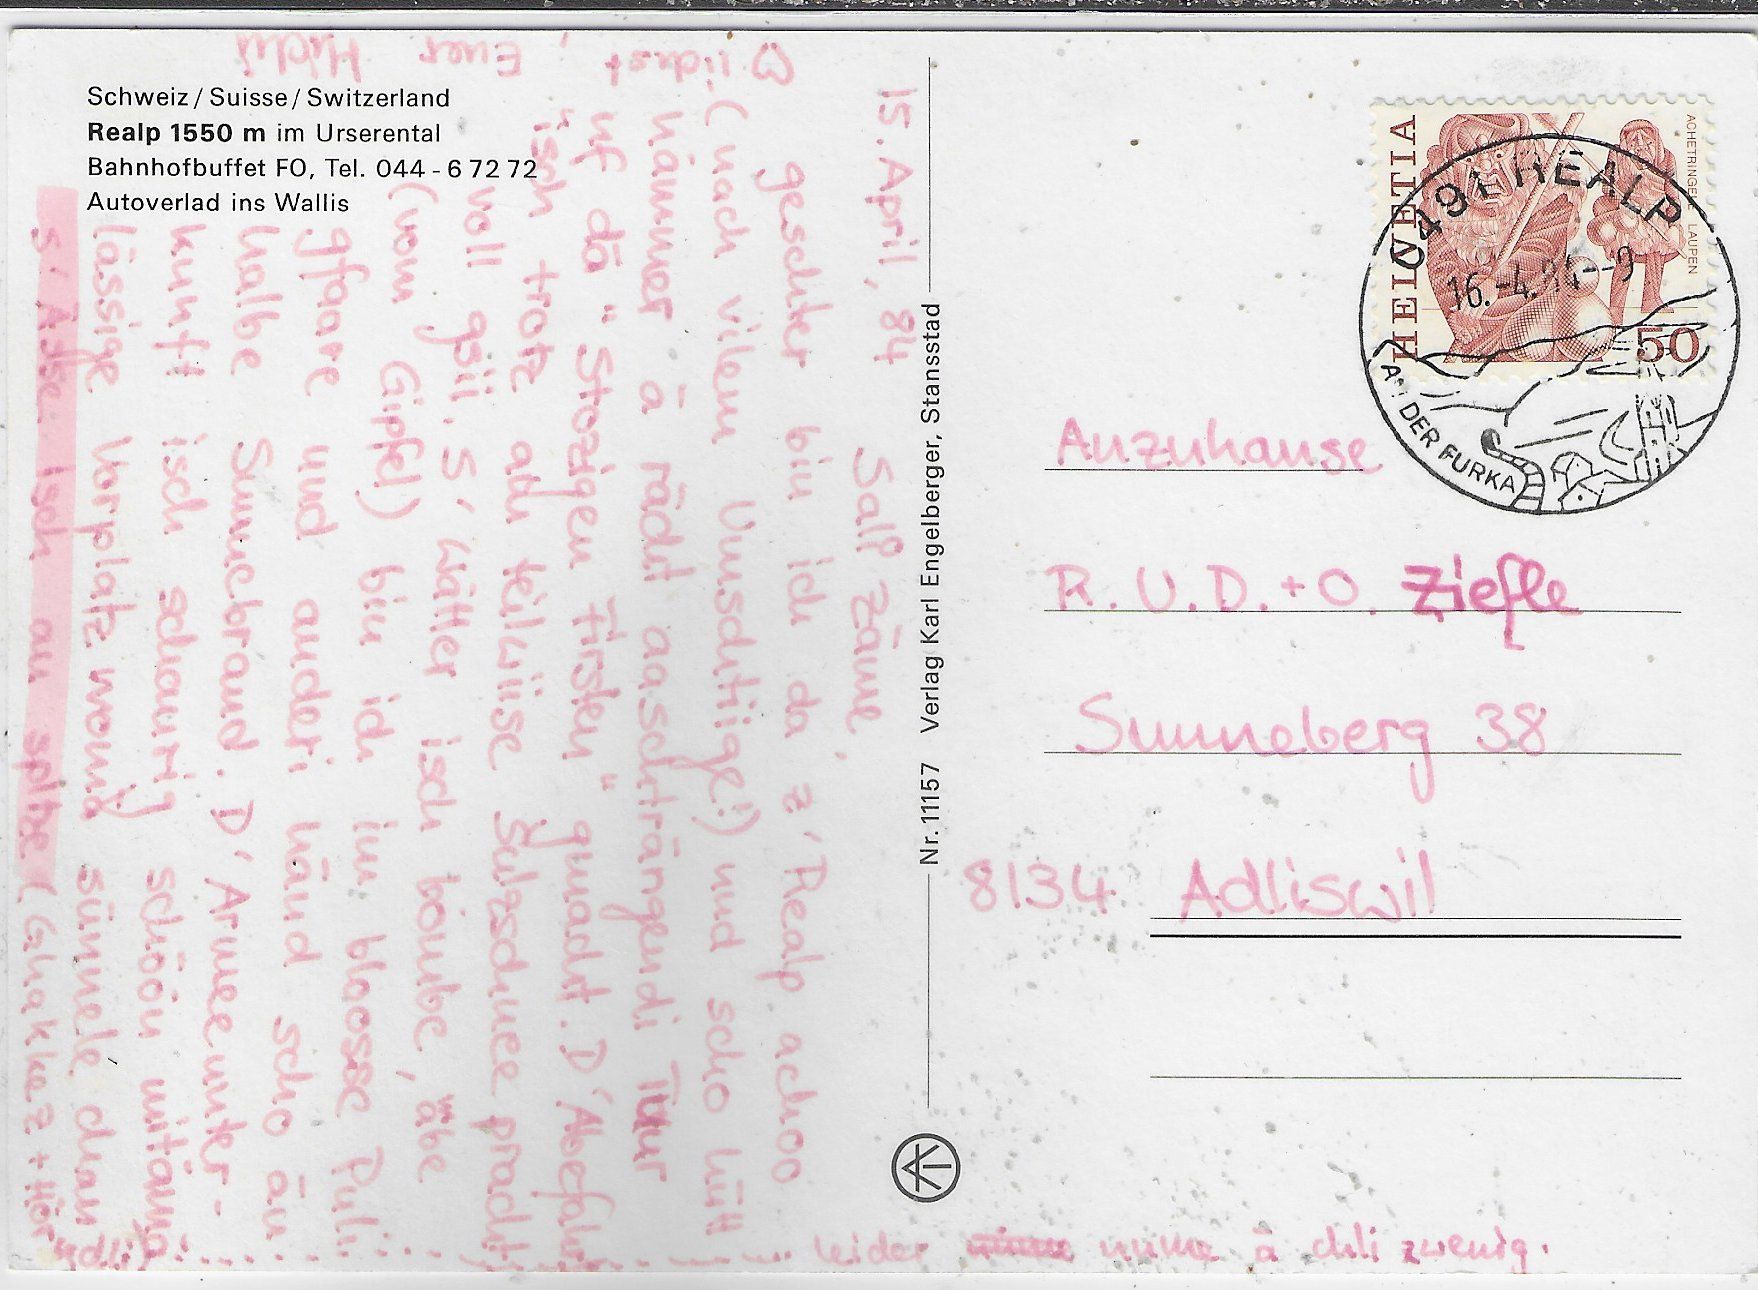 Schweiz / Suisse / Switzerland
Realp 1550 m im Urserental
Bahnhofbuffet FO, Tel. 044 - 6 72 72
Autoverlad ins Wallis
15. April, 84
Sali zäme,
geschter bin ich da z'Realp achoo
(nach vilem Umschtiige!) und scho hütt
hämmer ä rächt aaschträngendi Tour
uf dä "Stozigen Firsten" gmacht. D'Abefahrt
isch trotz adu teilwiise Sulzschnee prächtig
voll gsii. S'Wätter isch bombe, äbe
(vom Gipfel) bin ich im blaosse Puli
gfaare und anderi händ scho än
halbe Sunnebrand. D'Armeeunter-
kunft isch schaurig schöön mitäma
lässige Vorplatz womä sünnele chan
s'Ässe isch au spitze (Ghakkez + Hör
leider nume ä chli zwenig.
Euer Heidi
Nr. 11157 Verlag Karl Engelberger, Stansstad
HELVETIA
ACHETRINGELE LAUPEN
50
6491 REALP
16.-4.84--9
AN DER FURKA
Anzuhause
R. U. D. + O. Ziefle
Sunneberg 38
8134 Adliswil